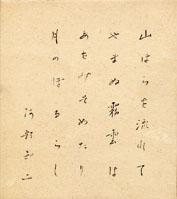 山はらを流れて
やまぬ霧雲は
あをみそめたり
月のぼるらし